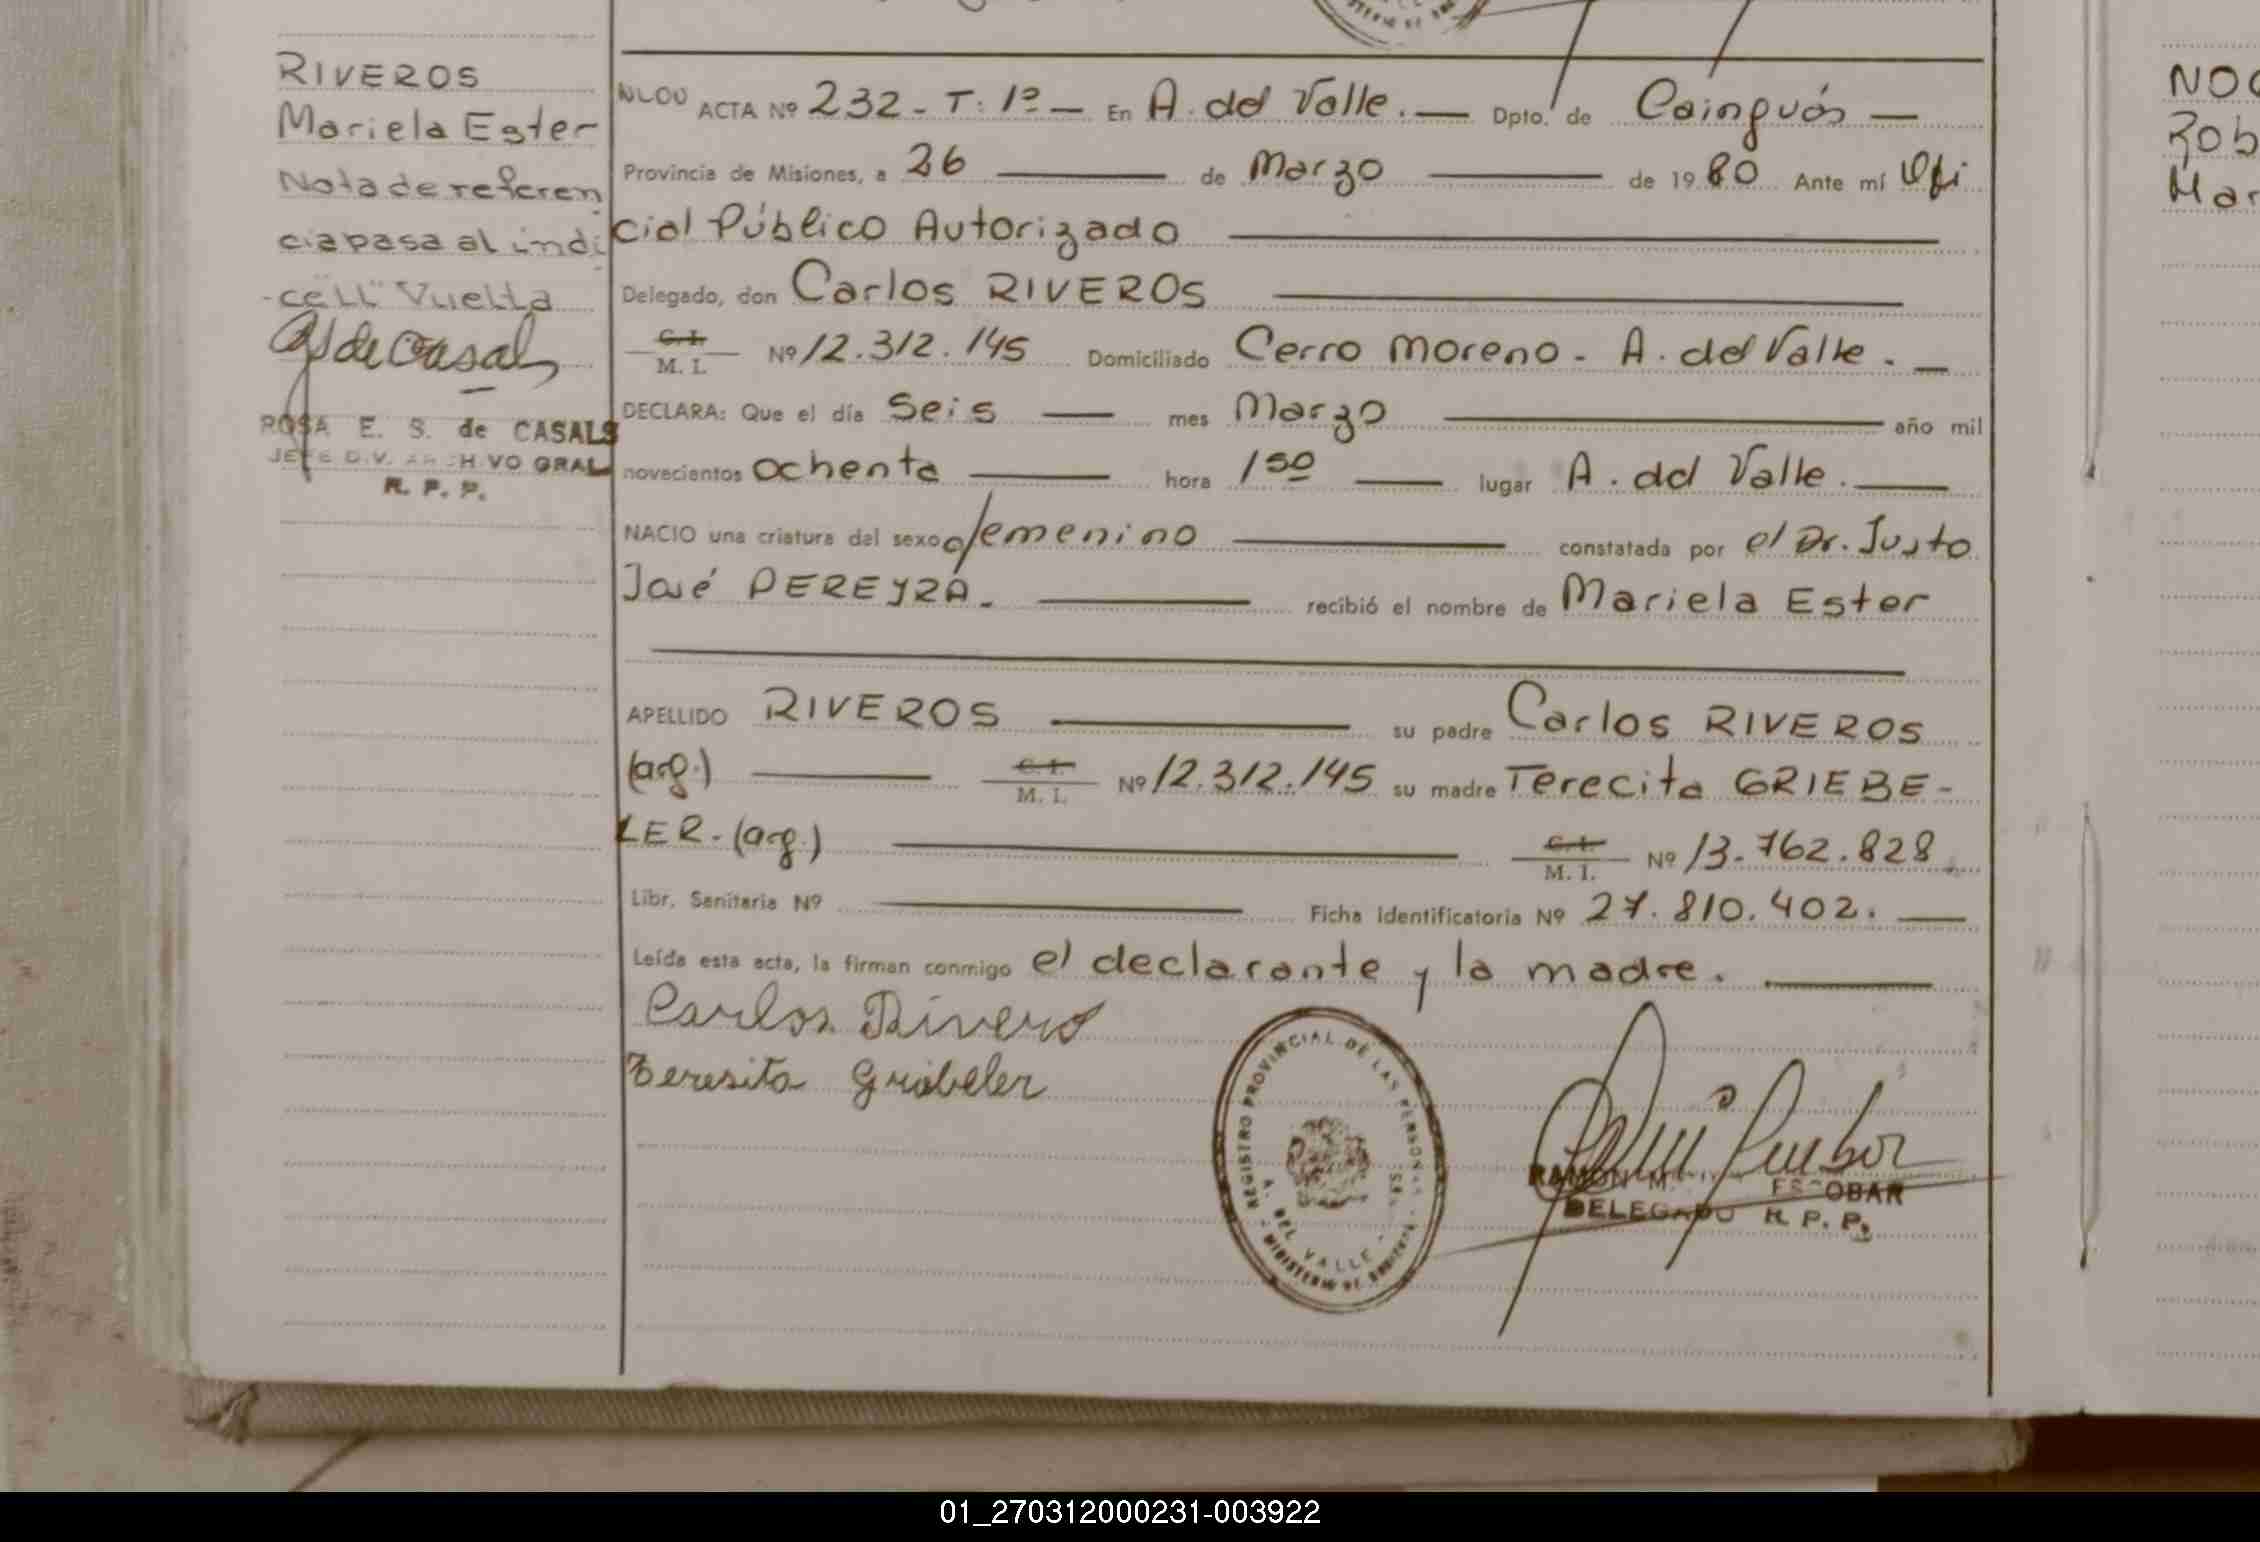 RIVEROS
Mariela Ester
Nota de referen
cia pasa al indi
-ce "LL" Vuelta
ROSA E. S. de CASALS
JEFE DIV. ARCHIVO GRAL
R. P. P.
ACTA Nº 232 - T: 1º — En A. del Valle. — Dpto. de Cainguás —
Provincia de Misiones, a 26 — de Marzo — de 1980 Ante mí Ofi
cial Público Autorizado —
Delegado, don Carlos RIVEROS —
C. I.
M. I. Nº 12.312.145 Domiciliado Cerro Moreno - A. del Valle. —
DECLARA: Que el día Seis — mes Marzo — año mil
novecientos ochenta — hora 1 50 — lugar A. del Valle. —
NACIO una criatura del sexo femenino — constatada por el Dr. Justo
José PEREYRA. — recibió el nombre de Mariela Ester
APELLIDO RIVEROS — su padre Carlos RIVEROS
(arg.) — C. I. M. I. Nº 12.312.145 su madre Terecita GRIEBE-
LER - (arg.) — C. I. M. I. Nº 13.762.828
Libr. Sanitaria Nº — Ficha Identificatoria Nº 27.810.402. —
Leída esta acta, la firman conmigo el declarante y la madre. —
Carlos Rivero
Teresita Griebeler
REGISTRO PROVINCIAL DE LAS PERSONAS
A. DEL VALLE
RAMON M. ESCOBAR
DELEGADO R. P. P.
NO
Rob
Mar
01_270312000231-003922